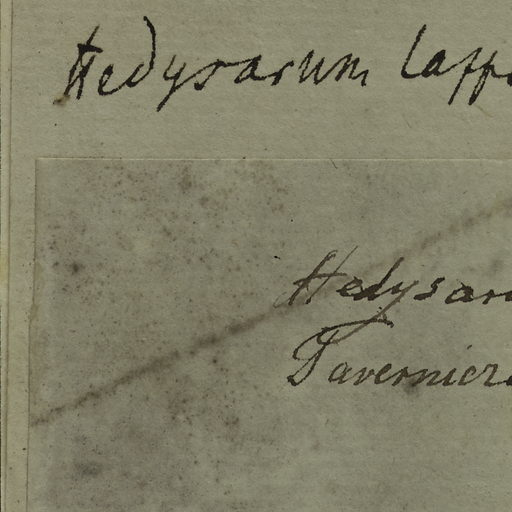 Hedysarum lappa
Hedysaru
Tavernier